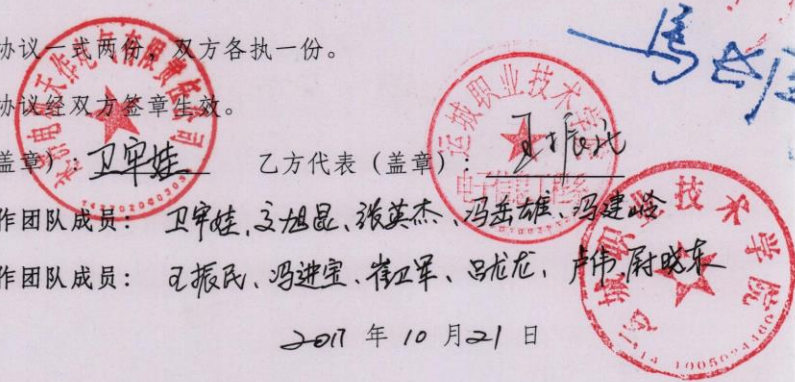 协议一式两份，双方各执一份。
协议经双方签章生效。
盖章）：卫牢娃 乙方代表（盖章）：王振民
作团队成员：卫牢娃、文旭昆、张英杰、冯岳雄、冯建峪
作团队成员：王振民、冯进宝、崔卫军、吕龙龙、卢伟、尉晓东
2017 年 10 月 21 日
运城职业技术学院
电子信息工程系
运城职业技术学院